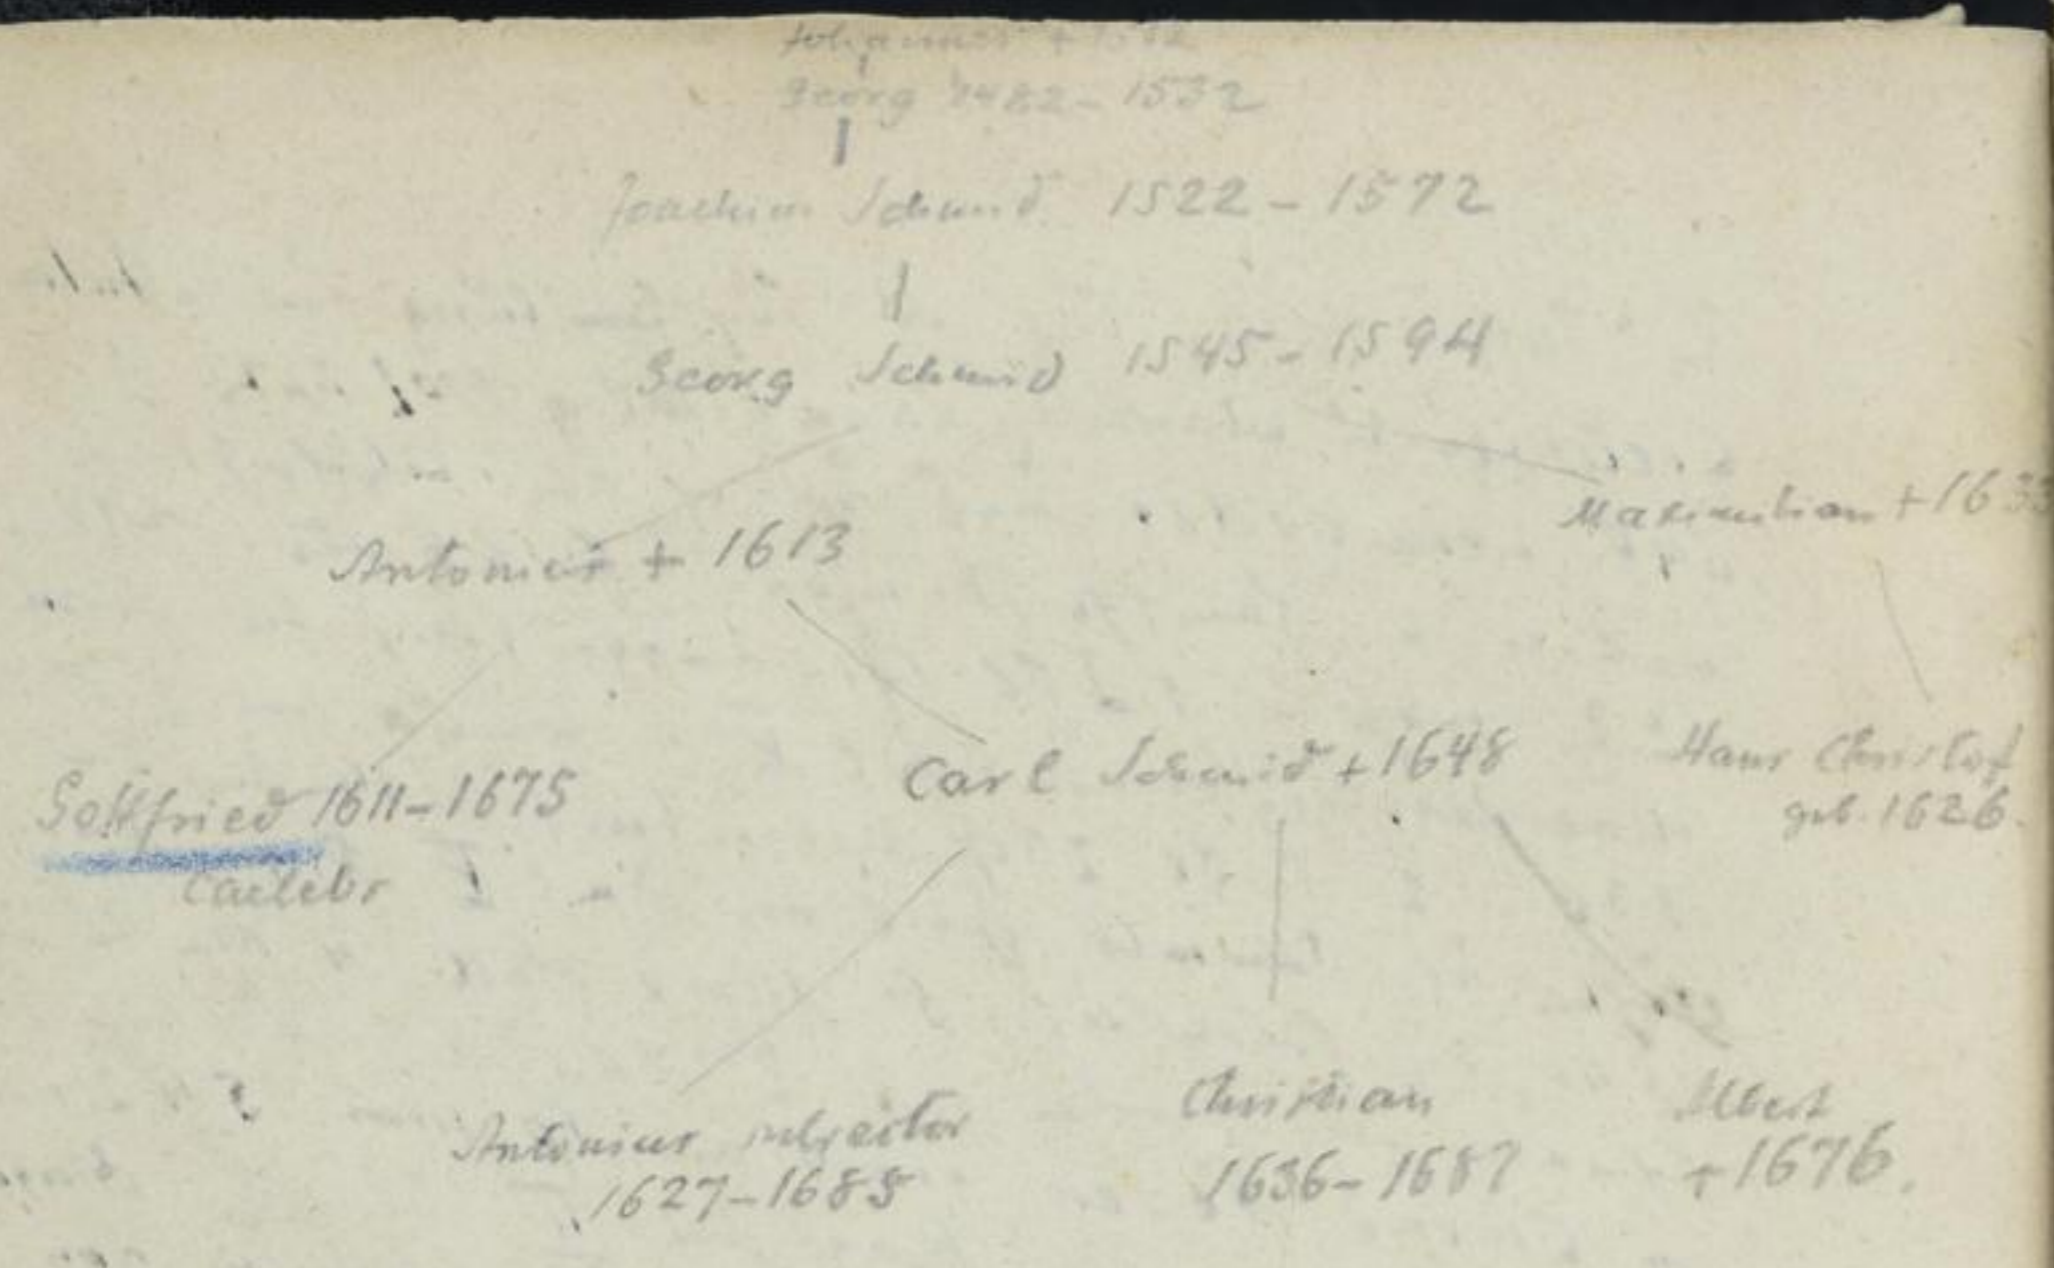 Johannes +
Georg 1482 - 1532
Joachim Schmid 1522 - 1572
Georg Schmid 1545 - 1594
Maximilian + 1633
Antonius + 1613
Gottfried 1611 - 1675
Caelebs
Carl Schmid + 1648
Hans Christof
geb. 1626.
Antonius subrector
1627 - 1685
Christian
1636 - 1687
Albert
+ 1676.